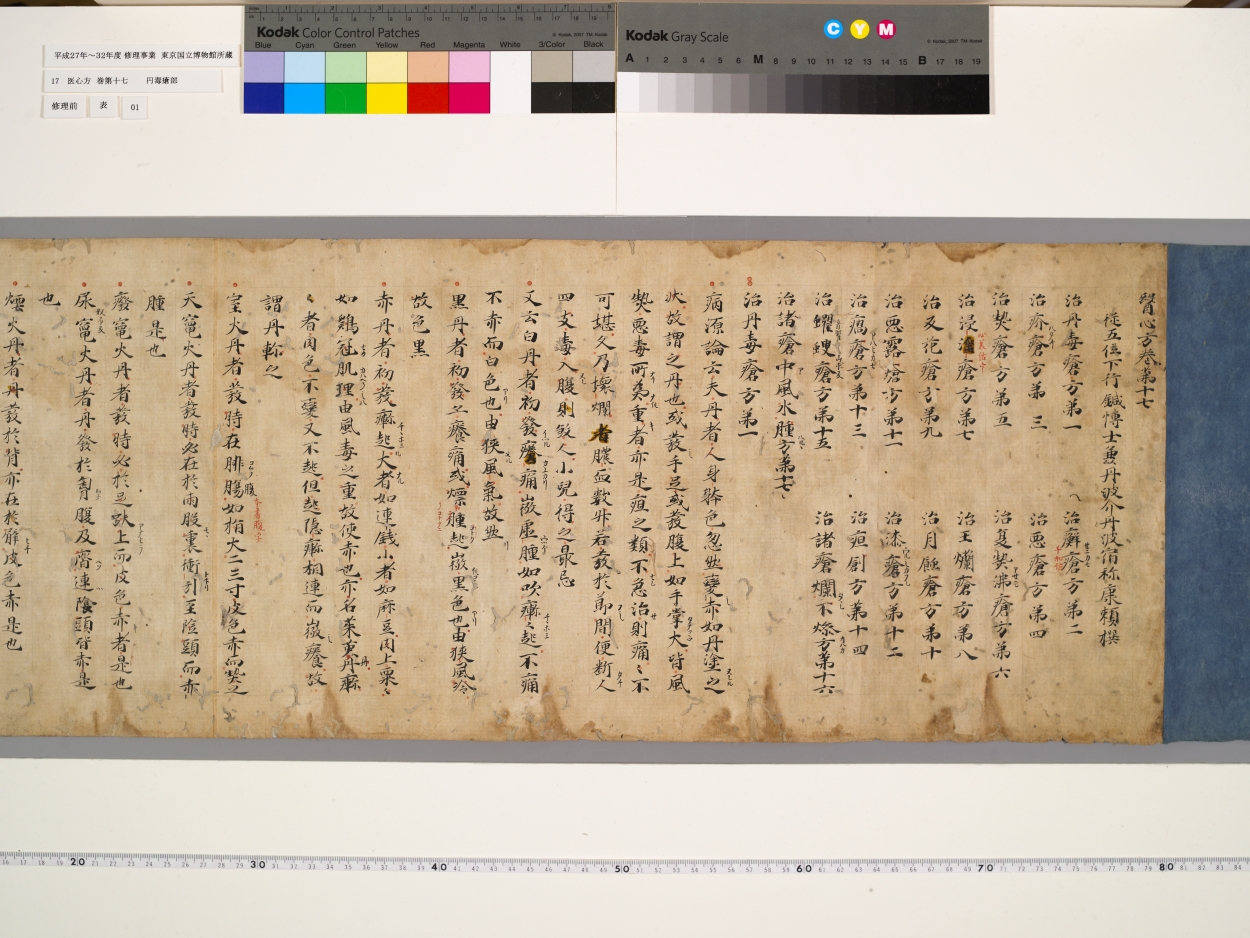 Kodak Color Control Patches
© Kodak, 2007 TM: Kodak
Blue Cyan Green Yellow Red Magenta White 3/Color Black
Kodak Gray Scale
C Y M
© Kodak, 2007 TM: Kodak
A 1 2 3 4 5 6 M 8 9 10 11 12 13 14 15 B 17 18 19
平成27年～32年度 修理事業 東京国立博物館所蔵
17 医心方 巻第十七 円毒瘡部
修理前 表 01
醫心方卷第十七
從五位下行鍼博士兼丹波介丹波宿祢康頼撰
治丹毒瘡方第一 治癬瘡方第二
治疥瘡方第三 治悪瘡方第四
治熱瘡方第五 治夏熱沸瘡方第六
治浸淫瘡方第七 治王爛瘡方第八
治反花瘡方第九 治月蝕瘡方第十
治悪露瘡方第十一 治漆瘡方第十二
治瘑瘡方第十三 治疽創方第十四
治蠷螋瘡方第十五 治諸瘡爛不燥方第十六
治諸瘡中風水腫方第十七
治丹毒瘡方第一
病源論云夫丹者人身躰色忽然變赤如丹塗之
状故謂之丹也或發手足或發腹上如手掌大皆風
熱悪毒所為重者亦是疽之類不急治則痛々不
可堪久乃壊爛者膿血數升若發於節間便断人
四支毒入腹則敓人小兒得之最忌
又云白丹者初發癢痛微虚腫如吹癬々起不痛
不赤而白色也由挟風氣故然
黒丹者初發亦癢痛或熛腫起微黒色也由挟風冷
故色黒
赤丹者初發癬起大者如連錢小者如麻豆肉上粟々
如鶏冠肌理由風毒之重故使赤也亦名茱萸丹癬
者肉色不變又不起但起隠癬相連而微癢故
謂丹軫之
室火丹者發時在腓腸如指大二三寸皮色赤而熱之
天竈火丹者發時必在於兩股裏衝引至陰頭而赤
腫是也
廢竈火丹者發時必於足趺上而皮色赤者是也
尿竈火丹者丹發於胷腹及齊連陰頭皆赤是
也
煙火丹者丹發於背亦在於臂皮色赤是也
20 30 40 50 60 70 80